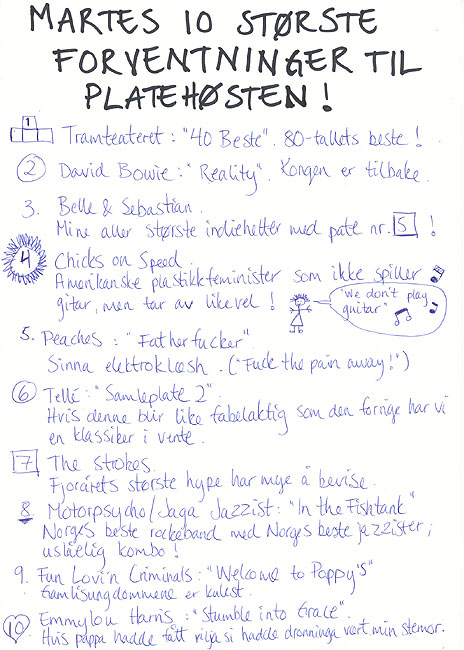 MARTES 10 STØRSTE
FORVENTNINGER TIL
PLATEHØSTEN!
1 Tramteateret: "40 Beste". 80-tallets beste!
2 David Bowie: "Reality". Kongen er tilbake.
3. Belle & Sebastian.
Mine aller største indiehelter med pate nr. 5 !
4 Chicks on Speed.
Amerikanske plastikkfeminister som ikke spiller
gitar, men tar av likevel!
"we don't play
guitar"
5. Peaches: "Fatherfucker"
Sinna elektroklæsh. ("Fuck the pain away!")
6 Tellé: "Samleplate 2"
Hvis denne blir like fabelaktig som den forrige har vi
en klassiker i vente.
7 The Strokes.
Fjorårets største hype har mye å bevise.
8 Motorpsycho/Jaga Jazzist: "In the Fishtank"
Norges beste rockeband med Norges beste jazzister;
uslåelig kombo!
9. Fun Lovi'n Criminals: "Welcome to Poppy's"
Gamlisungdommene er kulest.
10 Emmylou Harris: "Stumble into Grace".
Hvis pappa hadde fått vilja si hadde dronninga vært min stemor.